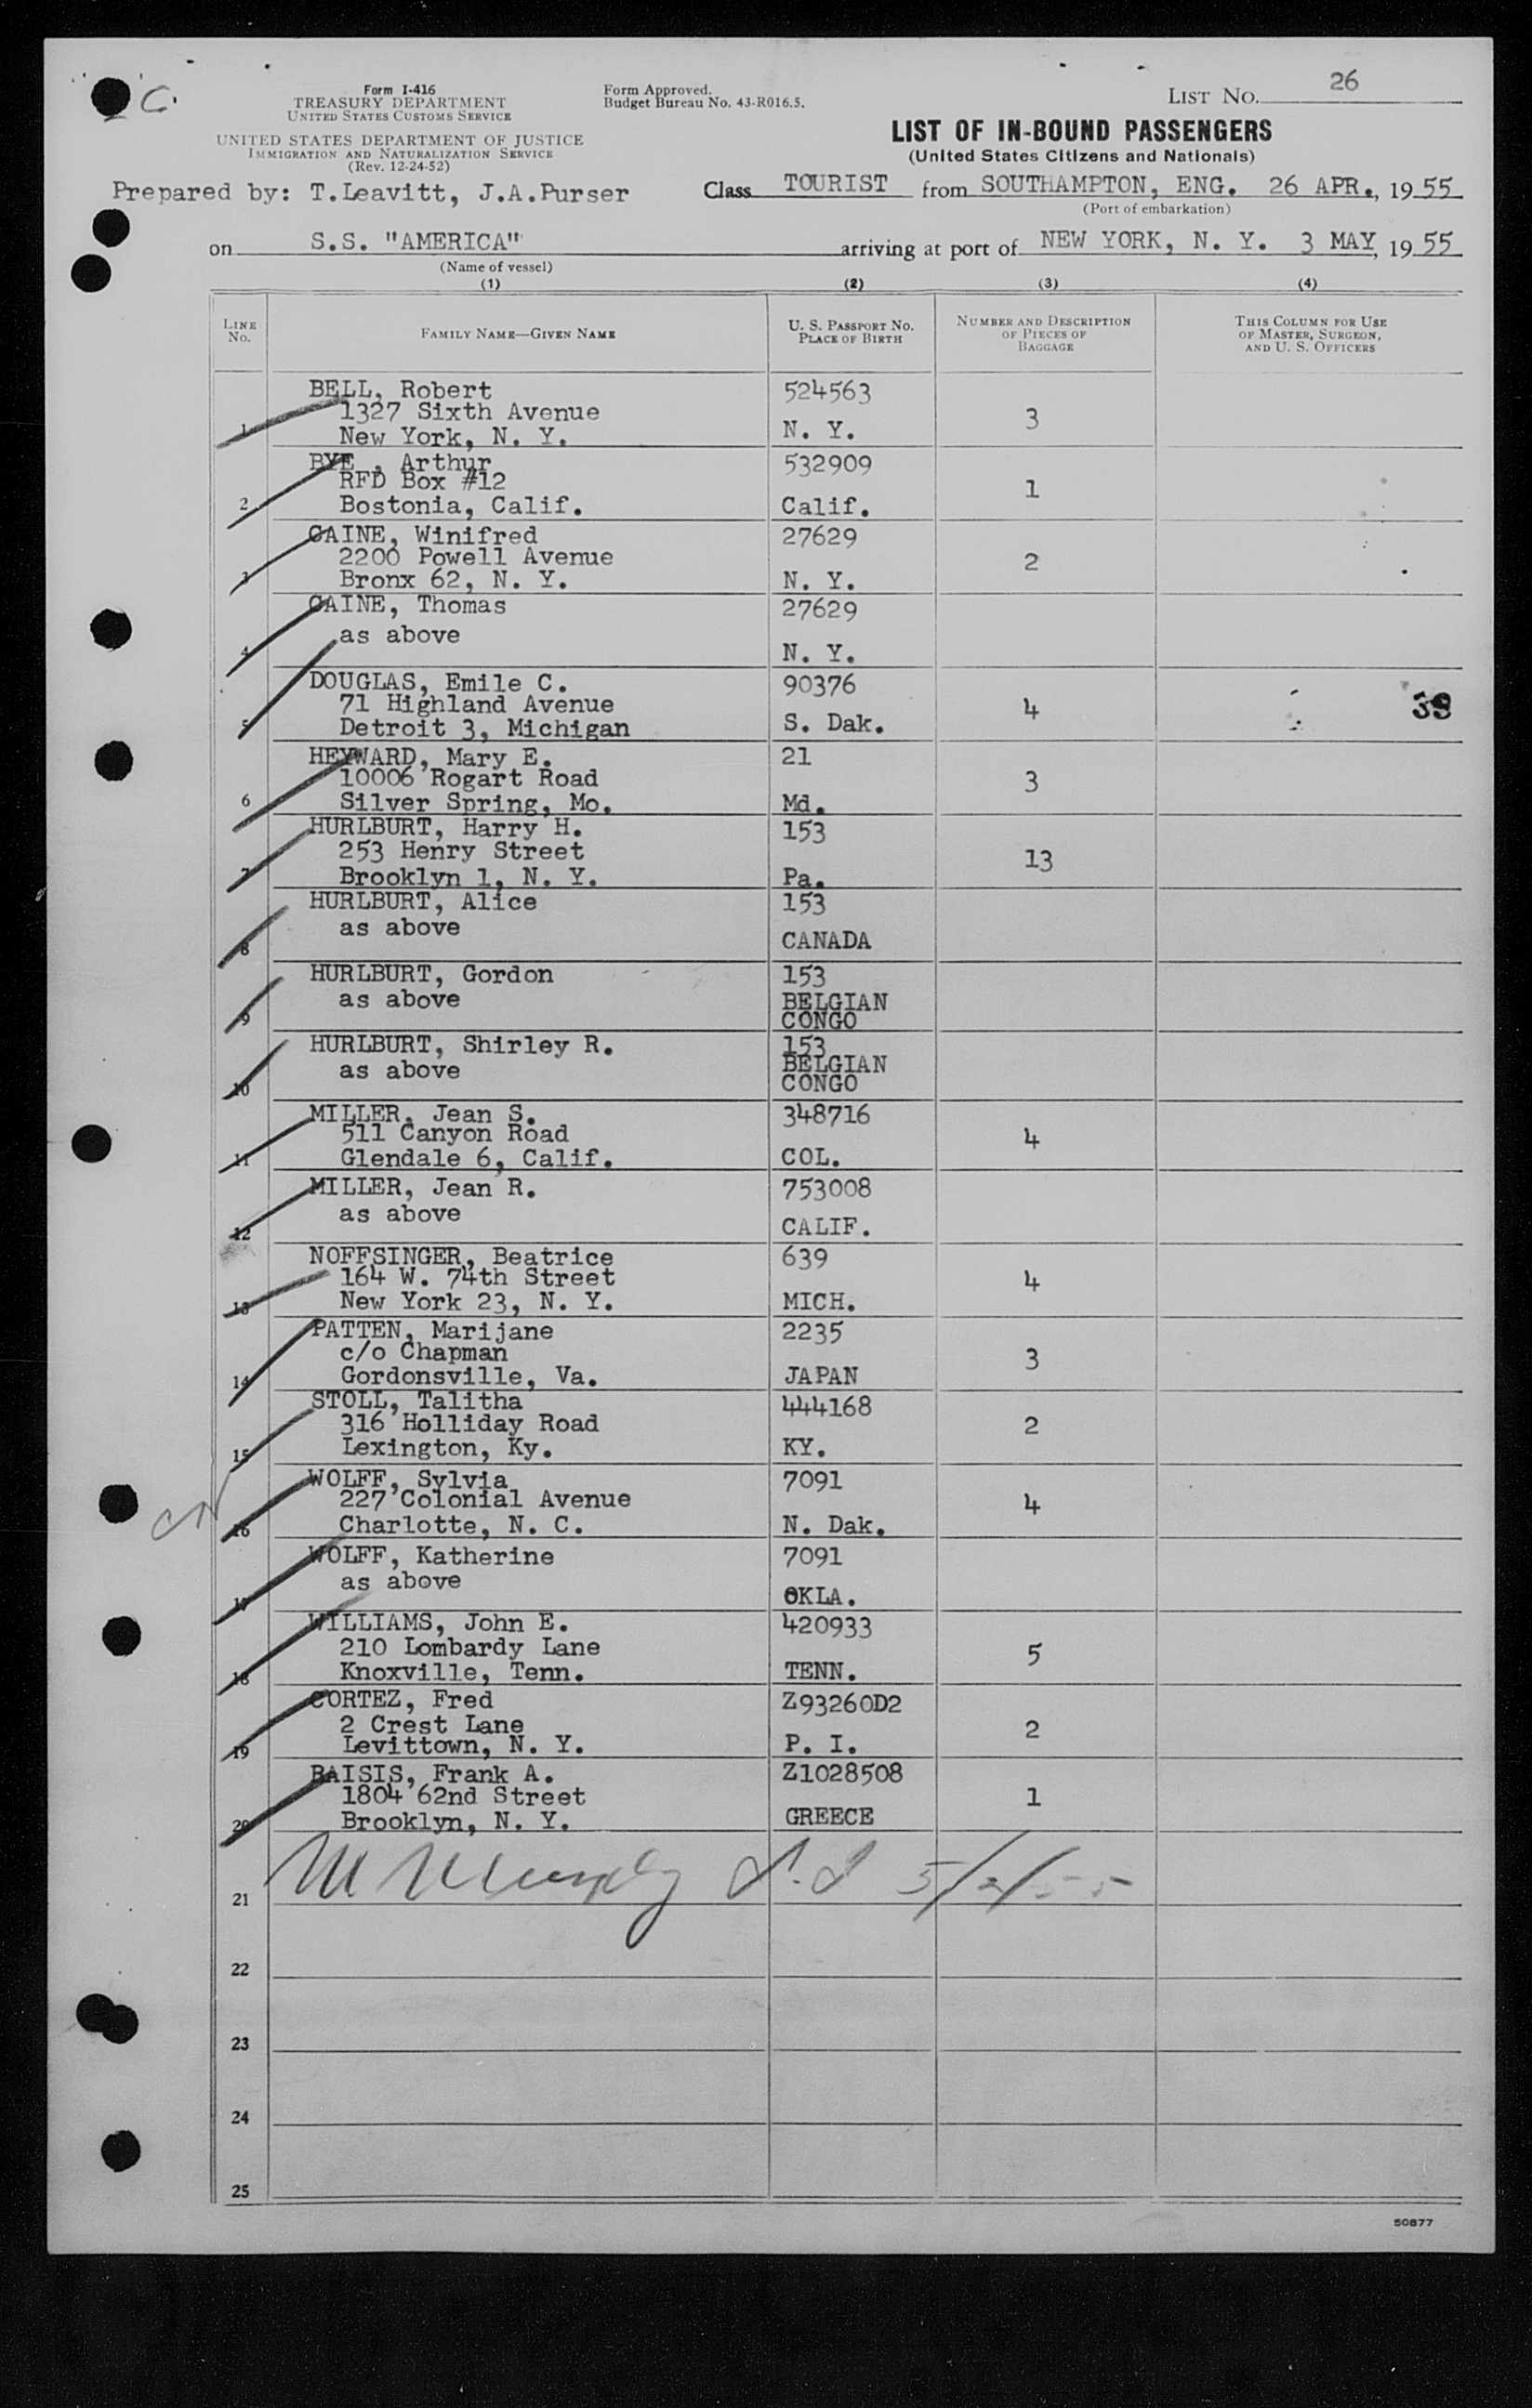 C.
Form I-416
TREASURY DEPARTMENT
UNITED STATES CUSTOMS SERVICE
UNITED STATES DEPARTMENT OF JUSTICE
IMMIGRATION AND NATURALIZATION SERVICE
(Rev. 12-24-52)
Form Approved.
Budget Bureau No. 43-R016.5.
LIST NO. 26
LIST OF IN-BOUND PASSENGERS
(United States Citizens and Nationals)
Prepared by: T.Leavitt, J.A.Purser
Class TOURIST from SOUTHAMPTON, ENG. 26 APR., 19 55
(Port of embarkation)
on S.S. "AMERICA" arriving at port of NEW YORK, N. Y. 3 MAY, 19 55
(Name of vessel)
(1) (2) (3) (4)
LINE No.
FAMILY NAME—GIVEN NAME
U. S. PASSPORT NO.
PLACE OF BIRTH
NUMBER AND DESCRIPTION
OF PIECES OF
BAGGAGE
THIS COLUMN FOR USE
OF MASTER, SURGEON,
AND U. S. OFFICERS
BELL, Robert 524563
1 1327 Sixth Avenue 3
New York, N. Y. N. Y.
BYE , Arthur 532909
2 RFD Box #12 1
Bostonia, Calif. Calif.
CAINE, Winifred 27629
3 2200 Powell Avenue 2
Bronx 62, N. Y. N. Y.
CAINE, Thomas 27629
4 as above
N. Y.
DOUGLAS, Emile C. 90376
5 71 Highland Avenue 4 39
Detroit 3, Michigan S. Dak.
HEYWARD, Mary E. 21
6 10006 Rogart Road 3
Silver Spring, Mo. Md.
HURLBURT, Harry H. 153
7 253 Henry Street 13
Brooklyn 1, N. Y. Pa.
HURLBURT, Alice 153
8 as above
CANADA
HURLBURT, Gordon 153
9 as above BELGIAN
CONGO
HURLBURT, Shirley R. 153
10 as above BELGIAN
CONGO
MILLER, Jean S. 348716
11 511 Canyon Road 4
Glendale 6, Calif. COL.
MILLER, Jean R. 753008
12 as above
CALIF.
NOFFSINGER, Beatrice 639
13 164 W. 74th Street 4
New York 23, N. Y. MICH.
PATTEN, Marijane 2235
14 c/o Chapman 3
Gordonsville, Va. JAPAN
STOLL, Talitha 444168
15 316 Holliday Road 2
Lexington, Ky. KY.
WOLFF, Sylvia 7091
16 227 Colonial Avenue 4
Charlotte, N. C. N. Dak.
WOLFF, Katherine 7091
17 as above
OKLA.
WILLIAMS, John E. 420933
18 210 Lombardy Lane 5
Knoxville, Tenn. TENN.
CORTEZ, Fred Z93260D2
19 2 Crest Lane 2
Levittown, N. Y. P. I.
BAISIS, Frank A. Z1028508
20 1804 62nd Street 1
Brooklyn, N. Y. GREECE
21
22
23
24
25
50877